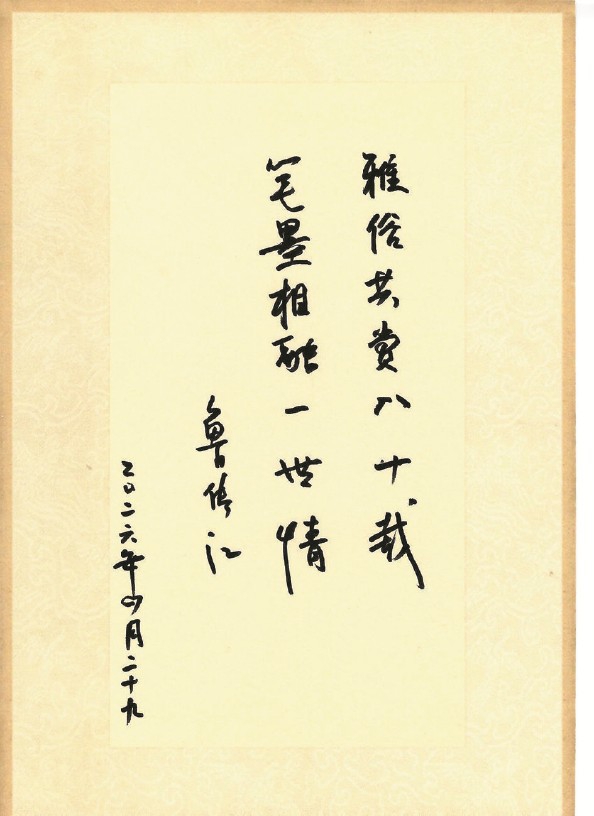 雅俗共赏八十载
笔墨相融一世情
鲁传江
二〇二六年四月二十九